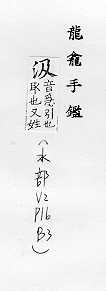 龍龕手鑑
汲音急引也
取也又姓
(水部 V2 P16 B3)